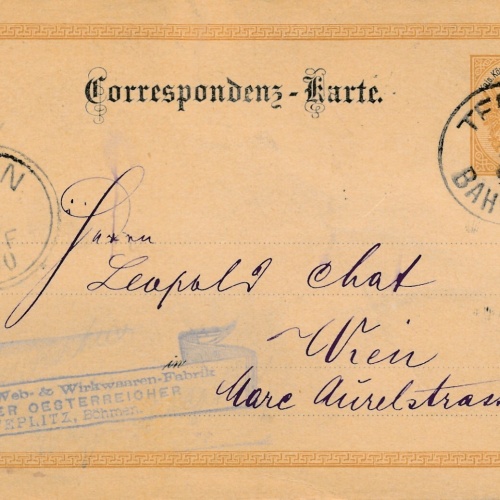 Correspondenz-Karte.
TE
BAH
N
Herrn
Leopold Chat
in Wien
Marc Aurelstrass
Web- & Wirkwaaren-Fabrik
ER OESTERREICHER
TEPLITZ, Böhmen.